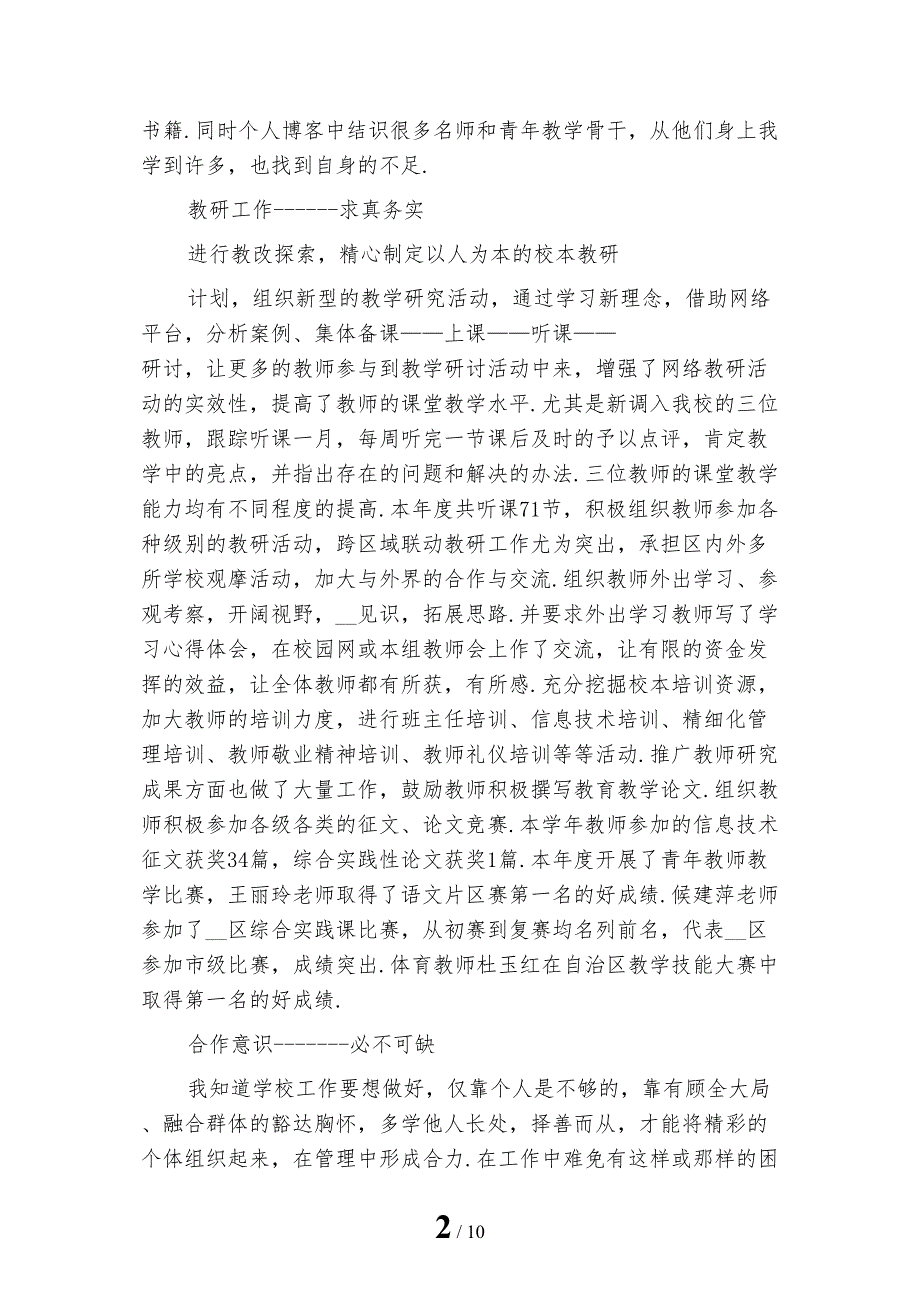 书籍.同时个人博客中结识很多名师和青年教学骨干，从他们身上我
学到许多，也找到自身的不足.
教研工作------求真务实
进行教改探索，精心制定以人为本的校本教研
计划，组织新型的教学研究活动，通过学习新理念，借助网络
平台，分析案例、集体备课——上课——听课——
研讨，让更多的教师参与到教学研讨活动中来，增强了网络教研活
动的实效性，提高了教师的课堂教学水平.尤其是新调入我校的三位
教师，跟踪听课一月，每周听完一节课后及时的予以点评，肯定教
学中的亮点，并指出存在的问题和解决的办法.三位教师的课堂教学
能力均有不同程度的提高.本年度共听课71节，积极组织教师参加各
种级别的教研活动，跨区域联动教研工作尤为突出，承担区内外多
所学校观摩活动，加大与外界的合作与交流.组织教师外出学习、参
观考察，开阔视野，__见识，拓展思路.并要求外出学习教师写了学
习心得体会，在校园网或本组教师会上作了交流，让有限的资金发
挥的效益，让全体教师都有所获，有所感.充分挖掘校本培训资源，
加大教师的培训力度，进行班主任培训、信息技术培训、精细化管
理培训、教师敬业精神培训、教师礼仪培训等等活动.推广教师研究
成果方面也做了大量工作，鼓励教师积极撰写教育教学论文.组织教
师积极参加各级各类的征文、论文竞赛.本学年教师参加的信息技术
征文获奖34篇，综合实践性论文获奖1篇.本年度开展了青年教师教
学比赛，王丽玲老师取得了语文片区赛第一名的好成绩.候建萍老师
参加了__区综合实践课比赛，从初赛到复赛均名列前名，代表__区
参加市级比赛，成绩突出.体育教师杜玉红在自治区教学技能大赛中
取得第一名的好成绩.
合作意识-------必不可缺
我知道学校工作要想做好，仅靠个人是不够的，靠有顾全大局
、融合群体的豁达胸怀，多学他人长处，择善而从，才能将精彩的
个体组织起来，在管理中形成合力.在工作中难免有这样或那样的困
2 / 10